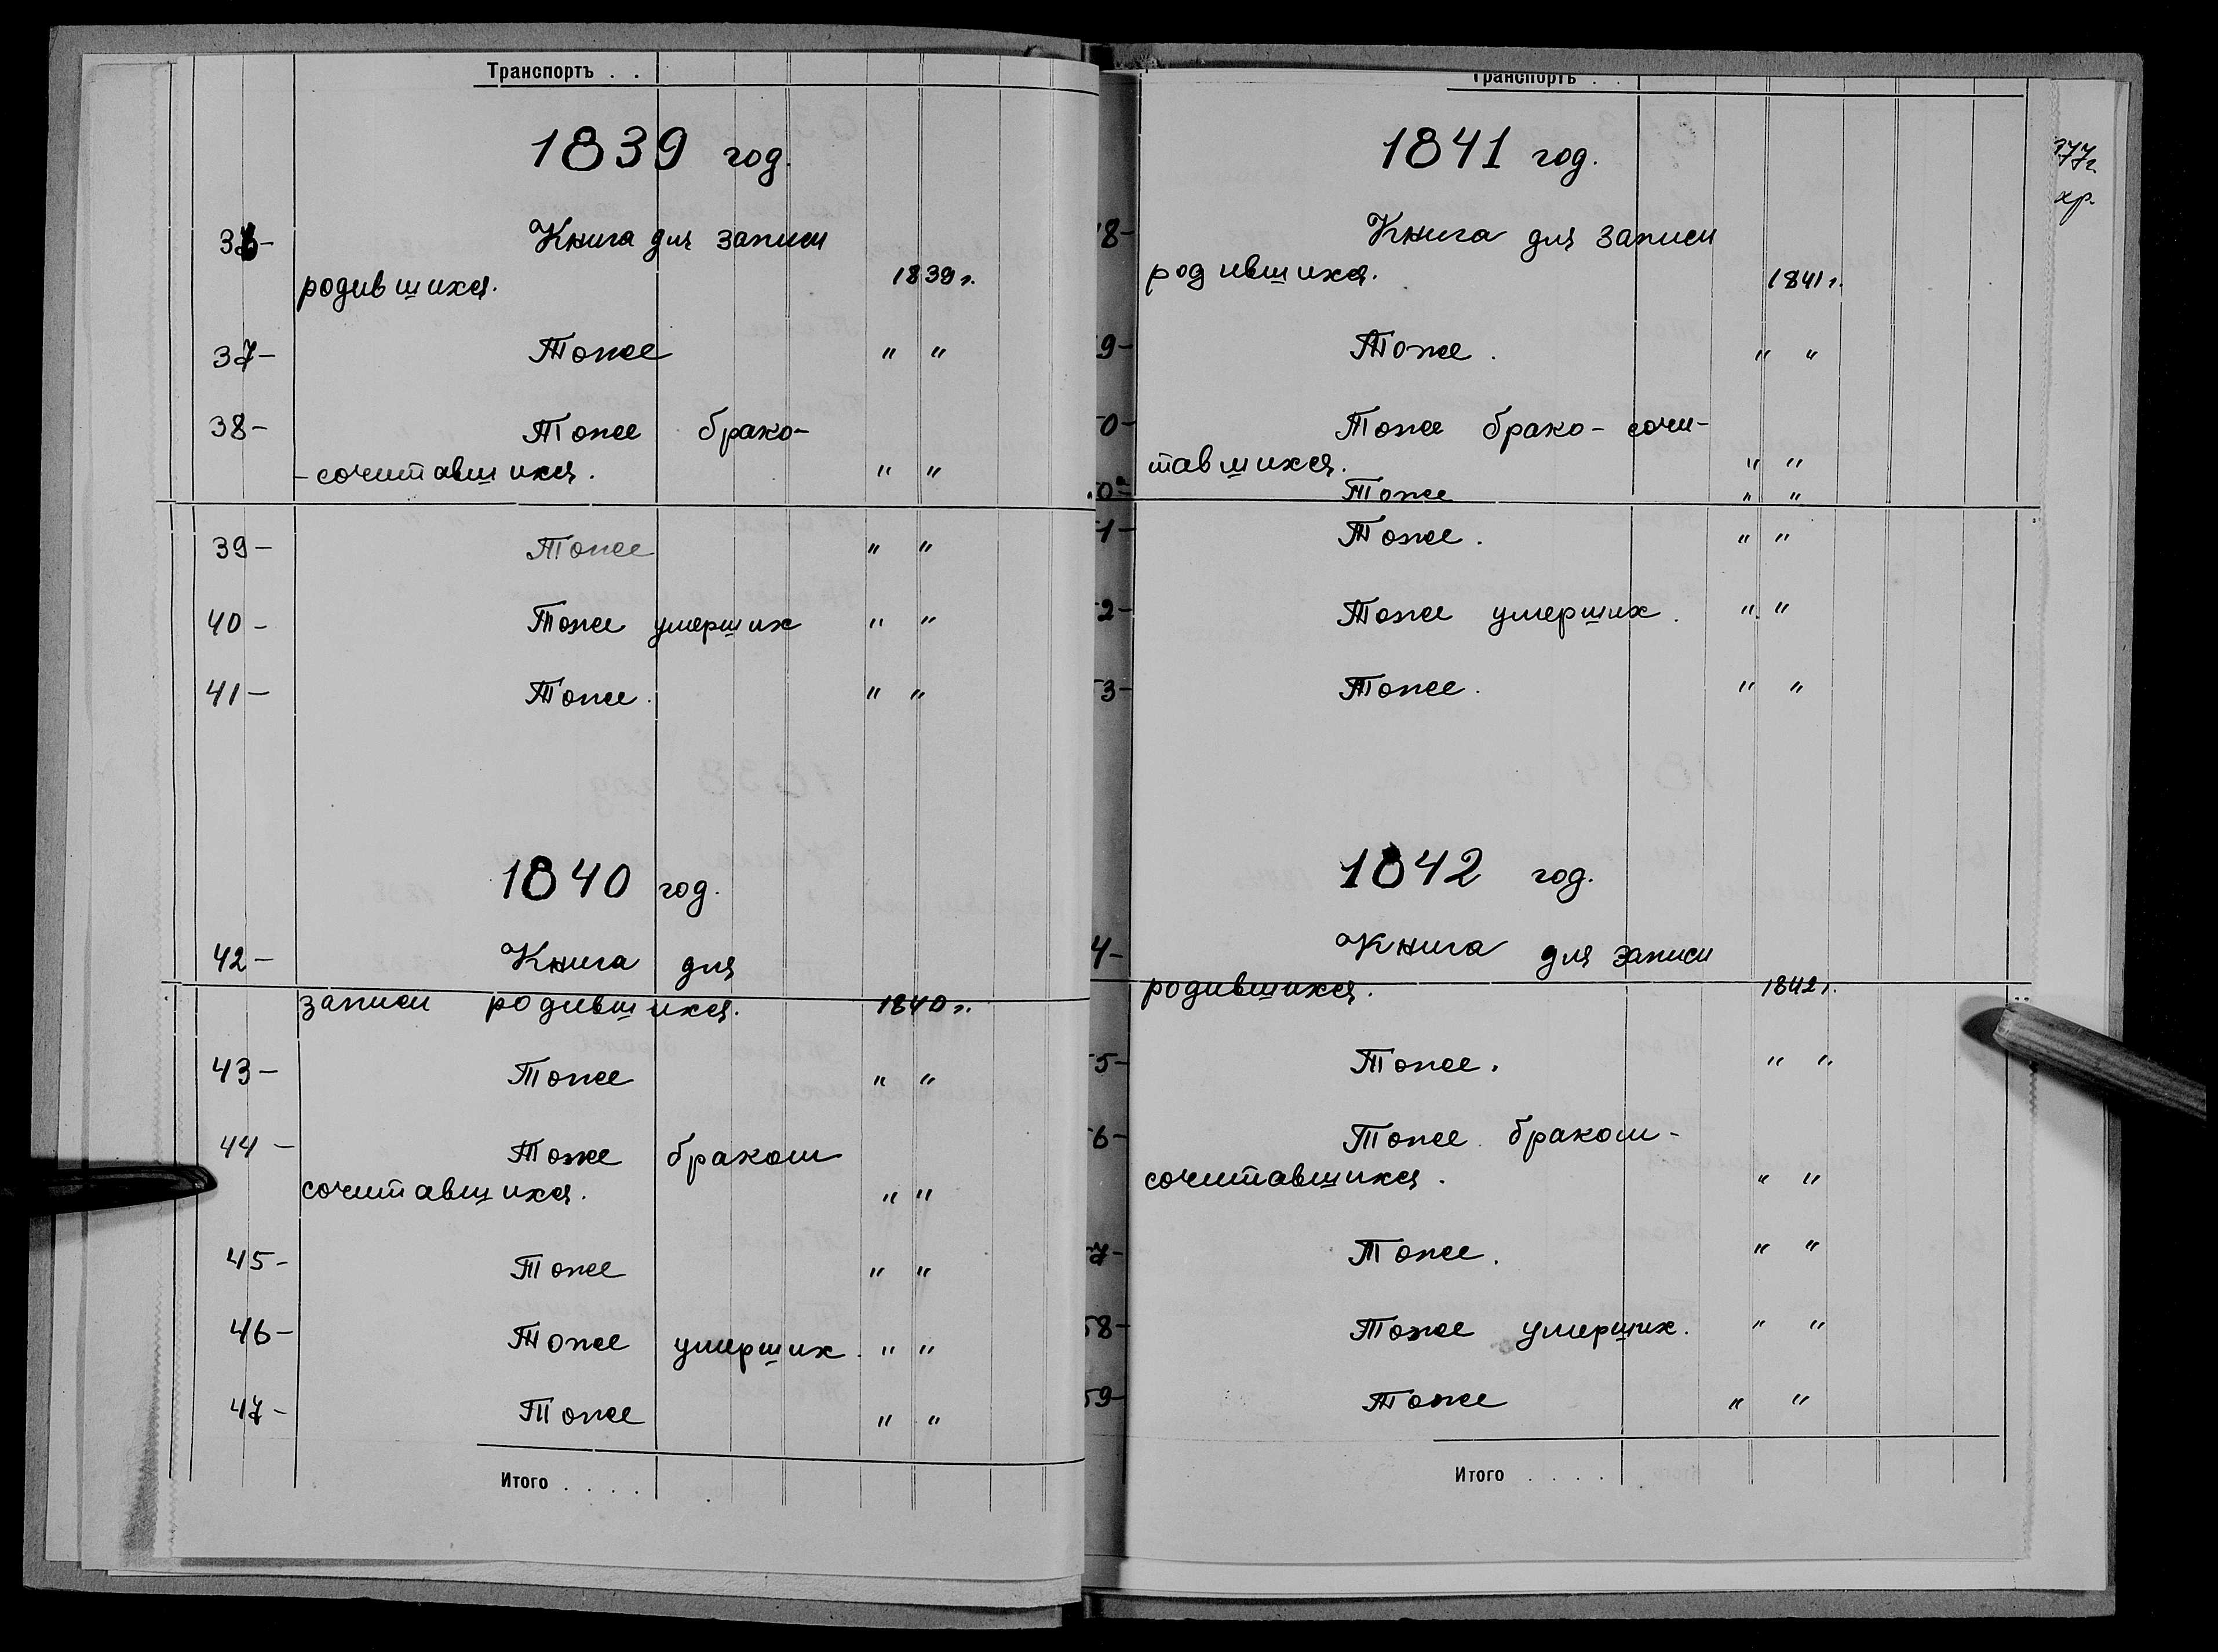 Транспортъ . .
1839 год.
36- Книга для записи
родившихся. 1839 г.
37- Тоже " "
38- Тоже брако-
-сочитавшихся. " "
39- Тоже " "
40- Тоже умерших " "
41- Тоже. " "
1840 год.
42- Книга для
записи родившихся. 1840 г.
43- Тоже " "
44- Тоже браком
сочитавшихся. " "
45- Тоже " "
46- Тоже умерших. " "
47- Тоже " "
Итого . . . .
Транспортъ . .
1841 год.
8- Книга для записи
родившихся. 1841 г.
9- Тоже. " "
0- Тоже брако-сочи-
тавшихся. " "
0а- Тоже " "
1- Тоже. " "
2- Тоже умерших. " "
3- Тоже. " "
1842 год.
4- Книга для записи
родившихся. 1842 г.
5- Тоже. " "
6- Тоже браком-
сочитавшихся. " "
57- Тоже. " "
58- Тоже умерших. " "
59- Тоже " "
Итого . . . .
77г.
хр.